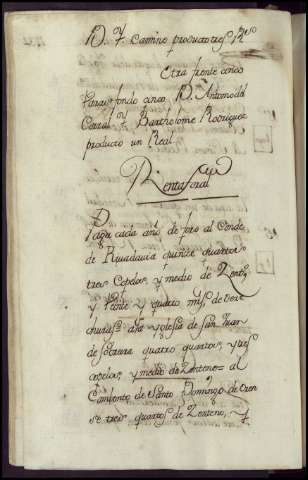 D. y. Camino producto tres Rs.
Otra frente cinco
varas fondo cinco D. Antonio del
Corral y. Bartholome Rodriguez
producto un Real
Renta foral
Paga cada año de foro al Conde
de Rivadavia quince quartos
tres Copelos, y medio de Zenteno
y Veinte y quatro mrs. de
a la yglesia de San Juan
de quatro quartos, y tres
copelos, y medio de Zenteno = al
Combento de Santo Domingo de Oren
se tres quartos de Zenteno, y